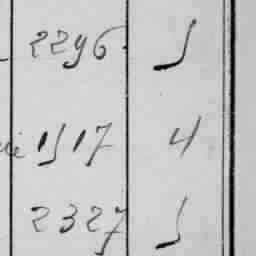 2296 5
1517 4
2327 5